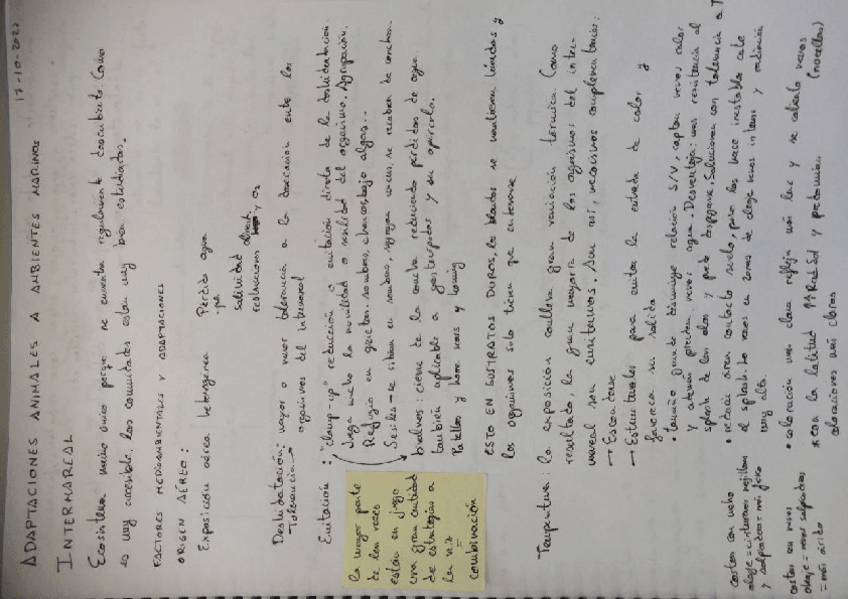 17-10-2022
ADAPTACIONES ANIMALES A AMBIENTES MARINOS
INTERMAREAL
Ecosistema mucho único porque se encuentra regularmente descubierto. Como
es muy accesible, las comunidades están muy bien estudiadas.
FACTORES MEDIOAMBIENTALES Y ADAPTACIONES
ORIGEN AÉREO:
Exposición aérea heterogénea
Pérdida agua
Salinidad
y O2
Deshidratación: mayor o menor tolerancia a la desecación entre los
Tolerancia organismos del intermareal
Evitación: "clamp-up" reducción o evitación directa de la deshidratación.
Juega mucho la movilidad o sesilidad del organismo. Agrupación.
Refugio en grietas, sombras, charcos, bajo algas...
Sésiles → se sitúan en sombras, agregan, se recubren de conchas.
bivalvos: cierre de la concha reduciendo pérdidas de agua
también aplicable a gasterópodos y su opérculo.
Patellas y home scars y homing
La mayor parte
de las veces
están en juego
una gran cantidad
de estrategias a
la vez
=
combinación
ESTO EN SUSTRATOS DUROS, los blandos se mantienen húmedos y
los organismos solo tienen que enterrarse
Temperatura: la exposición conlleva gran variación térmica. Como
resultado, la gran mayoría de los organismos del inter-
mareal son euritermos. Aun así, mecanismos complementarios:
→ Esconderse
→ Estructurales para evitar la entrada de calor y
favorecer su salida
• tamaño grande: disminuye relación S/V, captan menos calor
y además pierden menos agua. Desventaja: más resistencia al
splash de las olas y puede despegarse. Solucionan con tolerancia a T
• reducir área contacto suelo, pero los hace inestables ante
el splash. Lo vemos en zonas de oleaje menos intenso y radiación
muy alta.
• coloración más clara refleja más luz y se calienta menos
* con la latitud ↑↑ Rad Sol y predominan (nocellas)
coloraciones más claras
costas con mucho
oleaje = cinturones
y salpicaduras más
costas con menos
oleaje = menos salpicaduras
= más árido